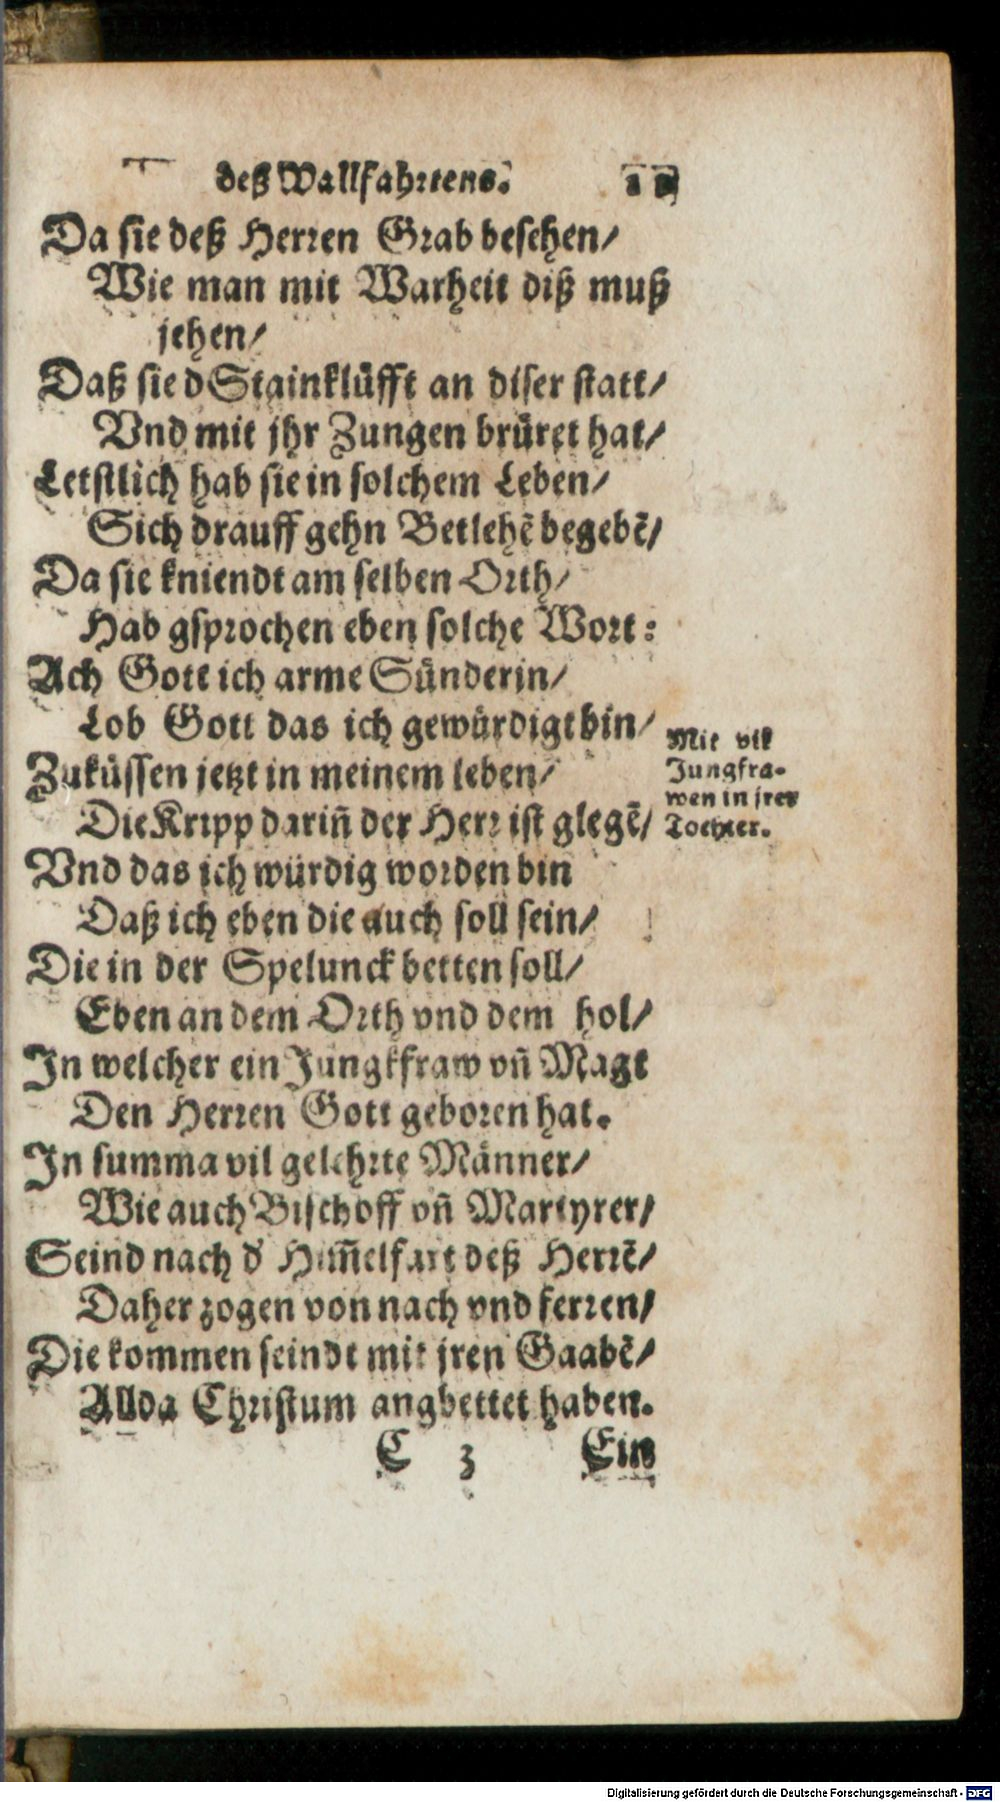 deß Wallfahrtens.
Da sie deß Herren Grab besehen/
Wie man mit Warheit diß muß
jehen/
Daß sie d Stainklüfft an diser statt/
Vnd mit jhr Zungen brüret hat/
Letstlich hab sie in solchem Leben/
Sich drauff gehn Betlehẽ begebẽ/
Da sie kniendt am selben Orth/
Hab gsprochen eben solche Wort:
Ach Gott ich arme Sünderin/
Lob Gott das ich gewürdigt bin/
Zuküssen jetzt in meinem leben/
Die Kripp dariñ der Herr ist glegẽ/
Mit vil
Jungfra-
wen in jrer
Tochter.
Vnd das ich würdig worden bin
Daß ich eben die auch soll sein/
Die in der Spelunck betten soll/
Eben an dem Orth vnd dem hol/
In welcher ein Jungkfraw vñ Magt
Den Herren Gott geboren hat.
In summa vil gelehrte Männer/
Wie auch Bischoff vñ Martyrer/
Seind nach d' Him̃elfart deß Herrẽ/
Daher zogen von nach vnd ferren/
Die kommen seindt mit jren Gaabẽ/
Allda Christum angbettet haben.
C 3 Ein
Digitalisierung gefördert durch die Deutsche Forschungsgemeinschaft - DFG